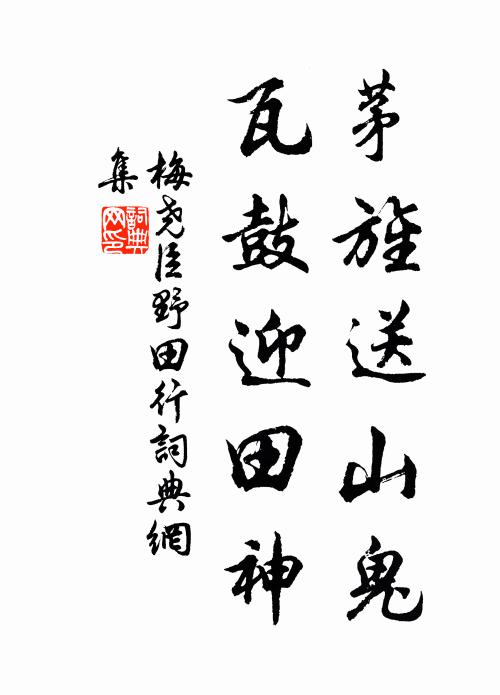 茅旌送山鬼
瓦鼓迎田神
梅尧臣野田行詞典網
集
詞典
网印